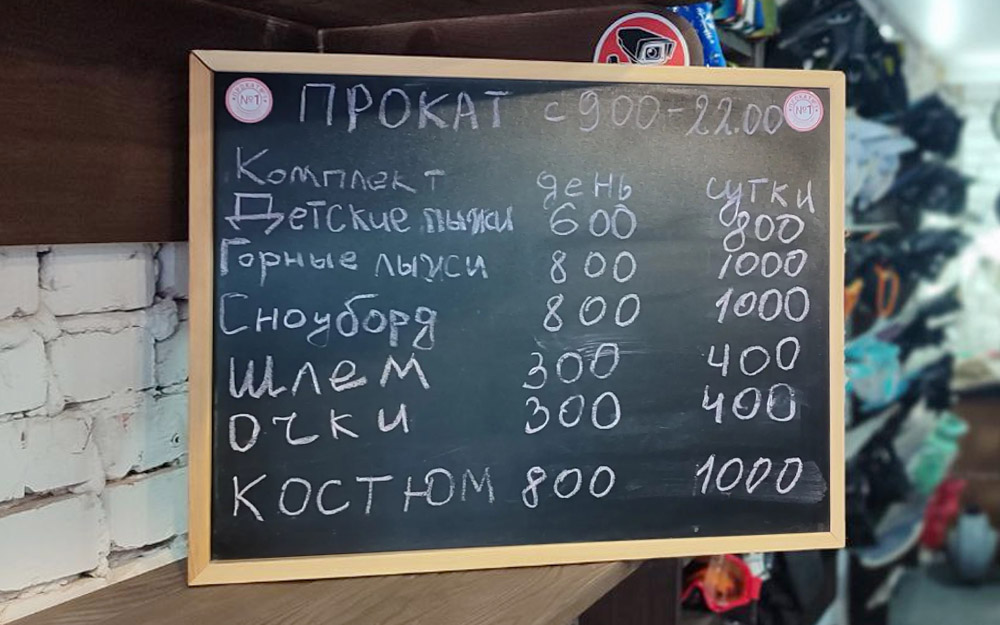 ПРОКАТ с 900-22.00
Комплект день сутки
Детские лыжи 600 800
Горные лыжи 800 1000
Сноуборд 800 1000
Шлем 300 400
очки 300 400
КОСТЮМ 800 1000
№1
№1